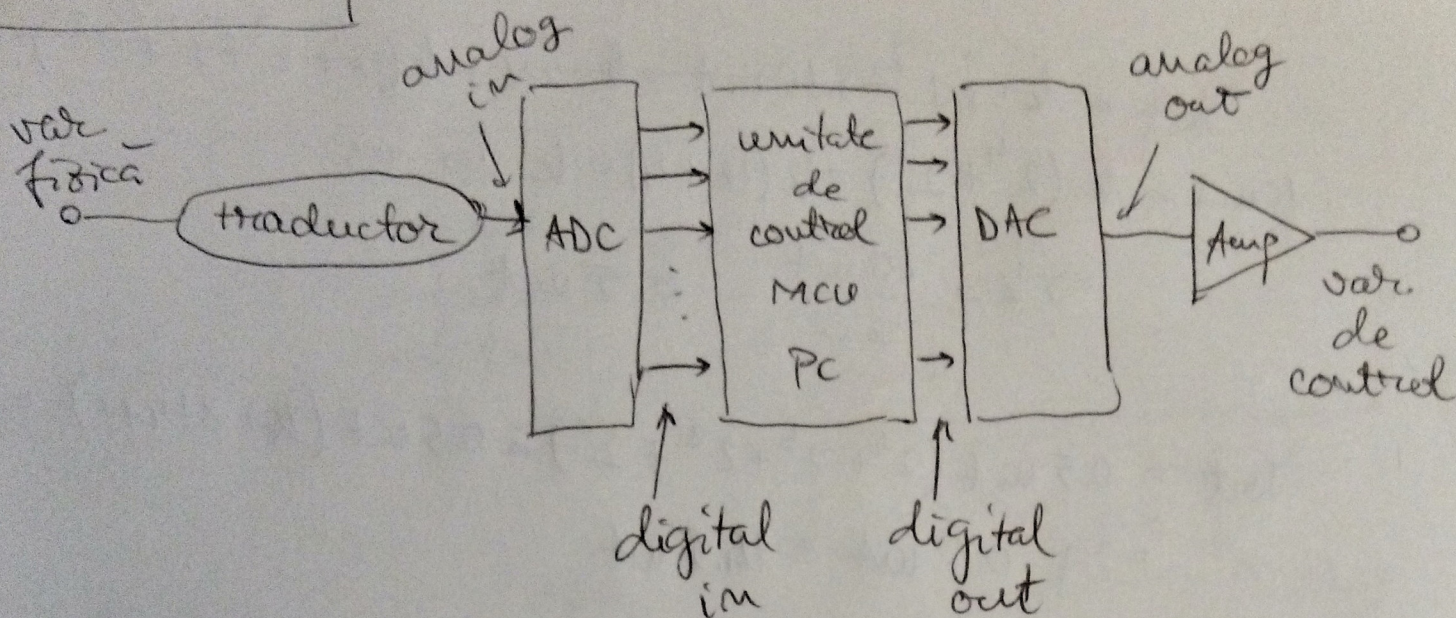 var
fizică
traductor
analog
in
ADC
unitate
de
control
MCU
PC
DAC
analog
out
Amp
var.
de
control
digital
in
digital
out